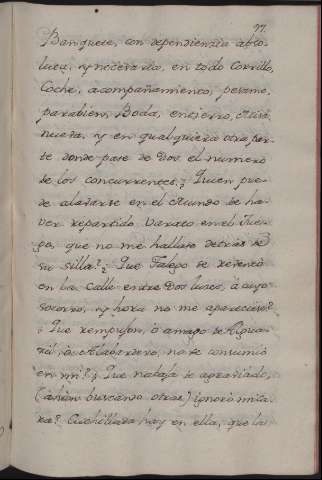 77.
Banquete, con dependienzia abso-
luta, y nezesaria, en todo Corrillo,
Coche, acompañamiento, pesame,
parabien, Boda, entierro, Missa
nueva, y en qualquiera otra par-
te donde pase de Dos el numero
de los concurrentes? Quien pue-
de alavarse en el Mundo de ha-
ver repartido varato en el Jue-
go, que no me hallase detras de
su silla? Que Talego se rebentó
en la calle entre Dos luzes, à cuyo
socorro, y hora no me apareciese?
¿Que rempujon, ò amago de Algua-
zil, ò Alabardero, no se consumió
en mi? ¿Que nataja se agraviado,
buscando otras) ignoró mi ca-
ra? Cuchillada hay en ella, que la